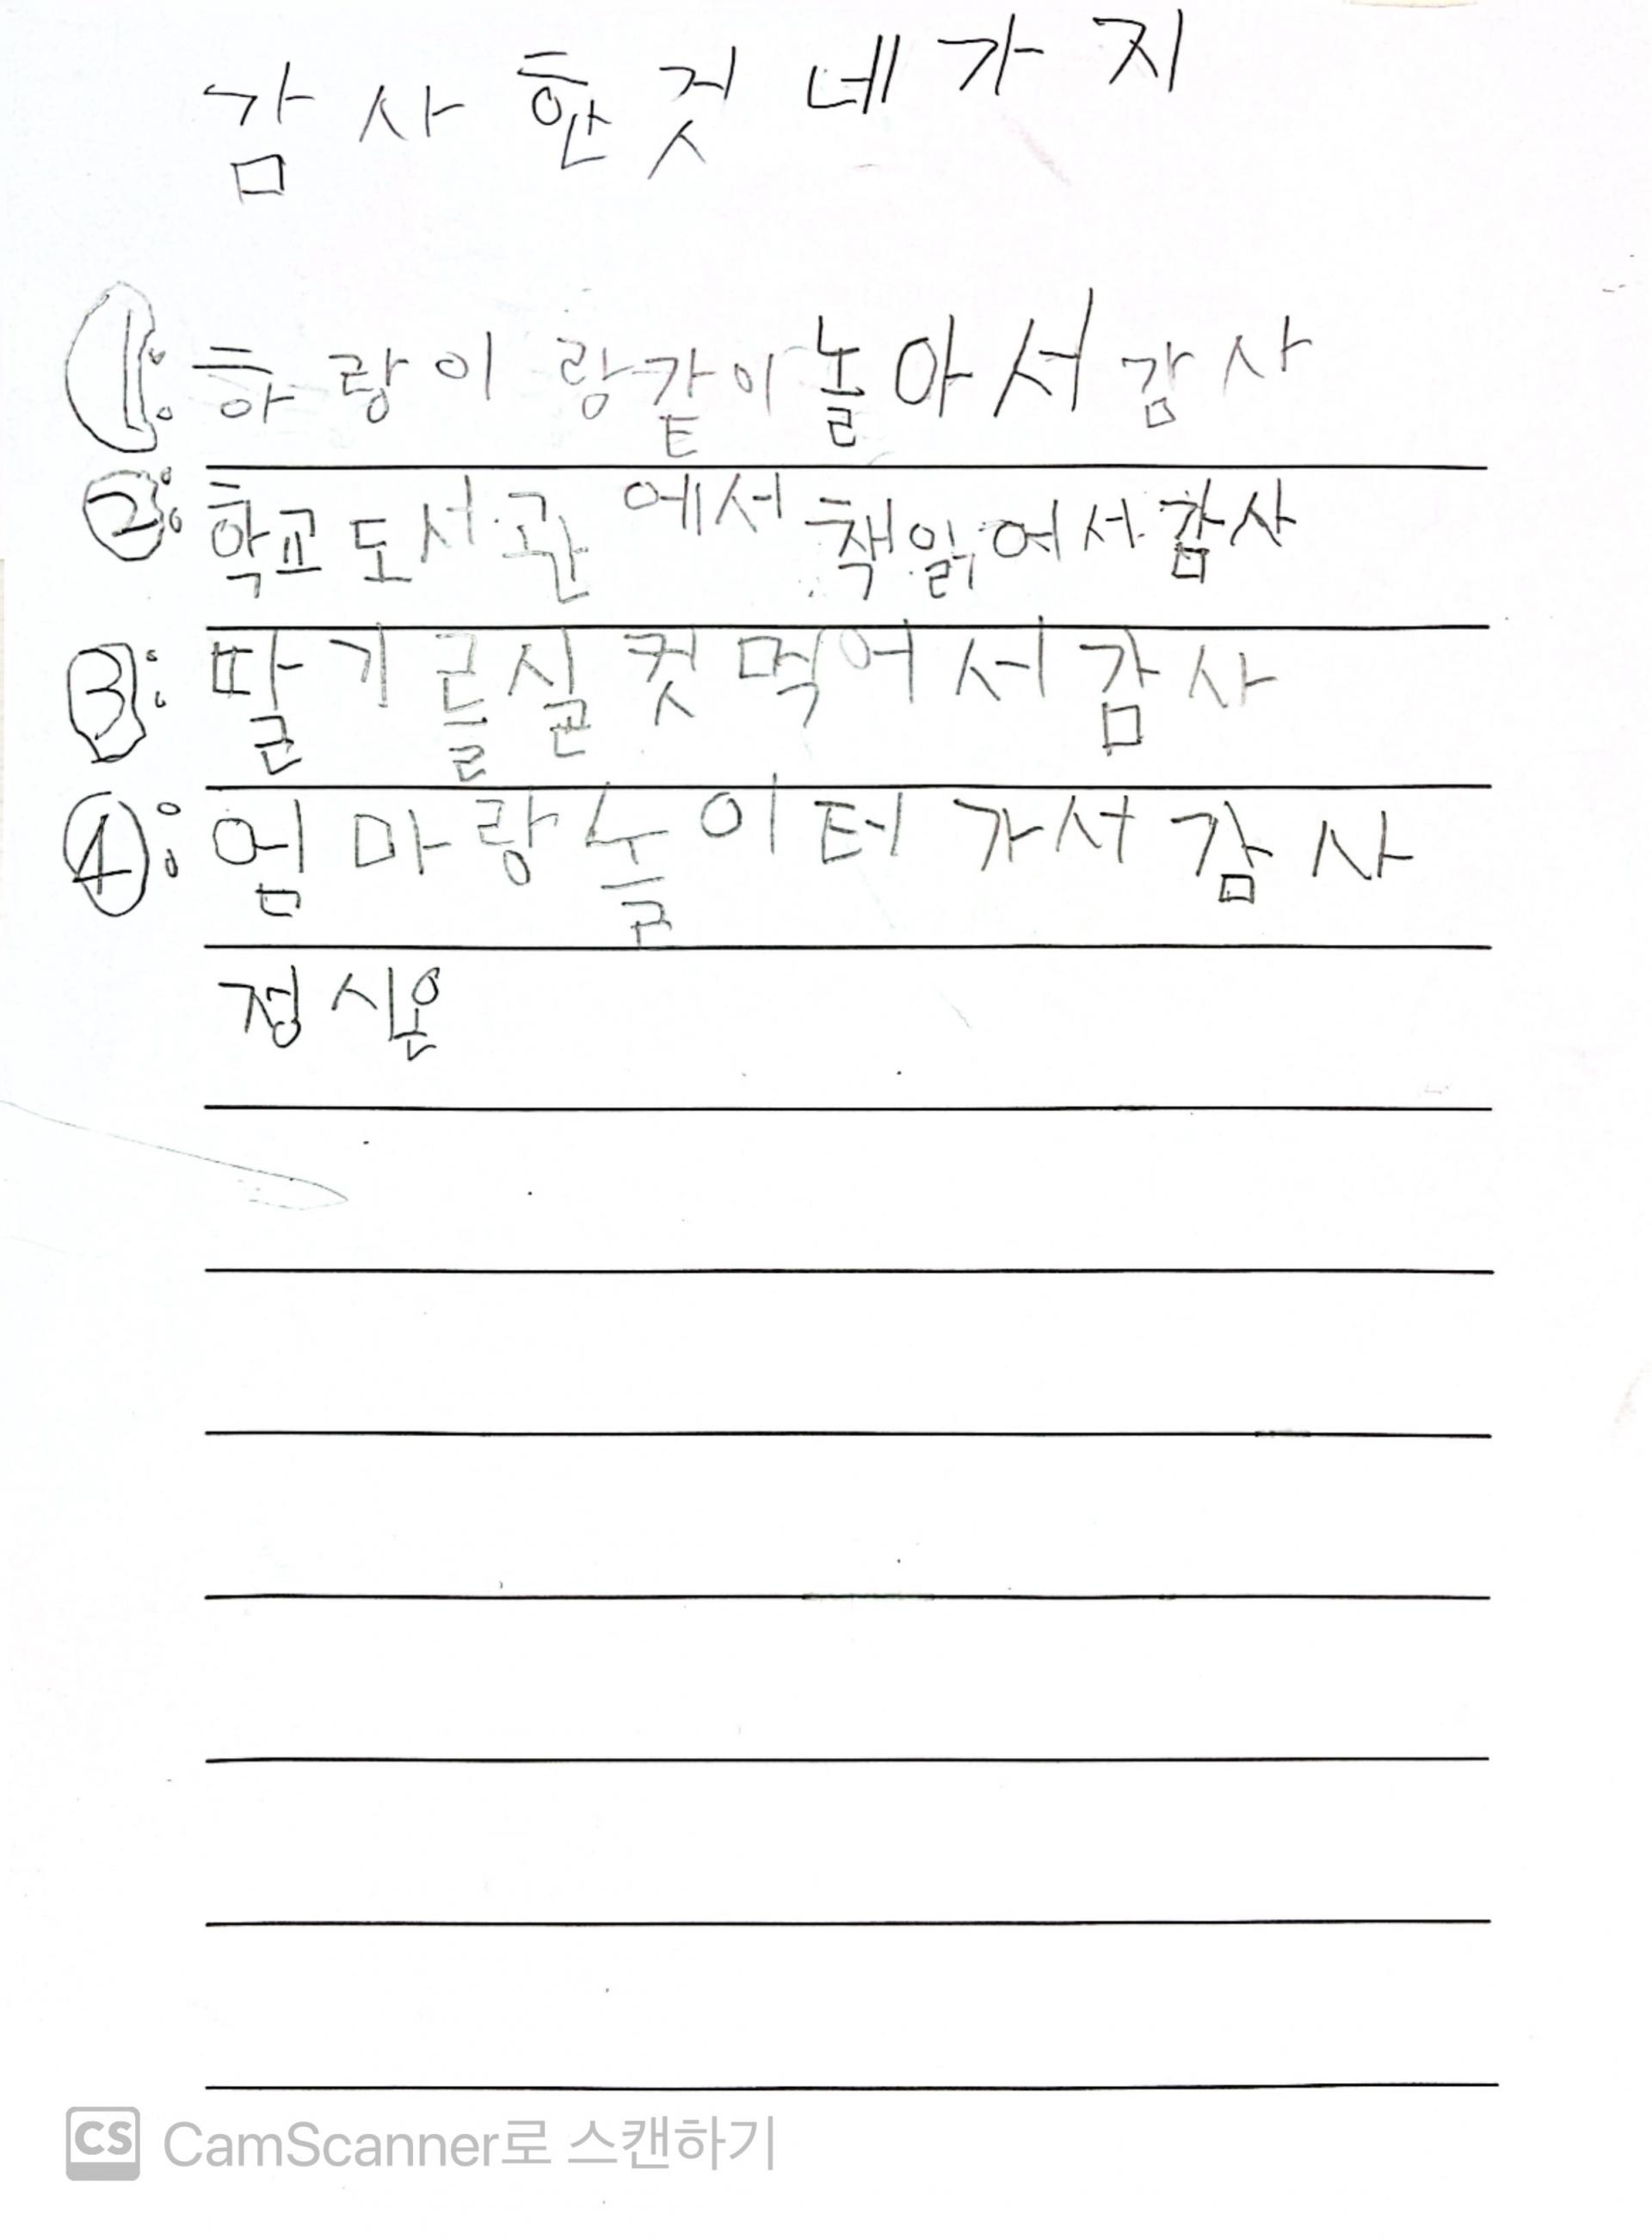 감사한것네가지
①: 하랑이랑같이놀아서감사
②: 학교도서관에서책읽어서감사
③: 딸기를실컷먹어서감사
④: 엄마랑놀이터가서감사
정시온
CS CamScanner로 스캔하기